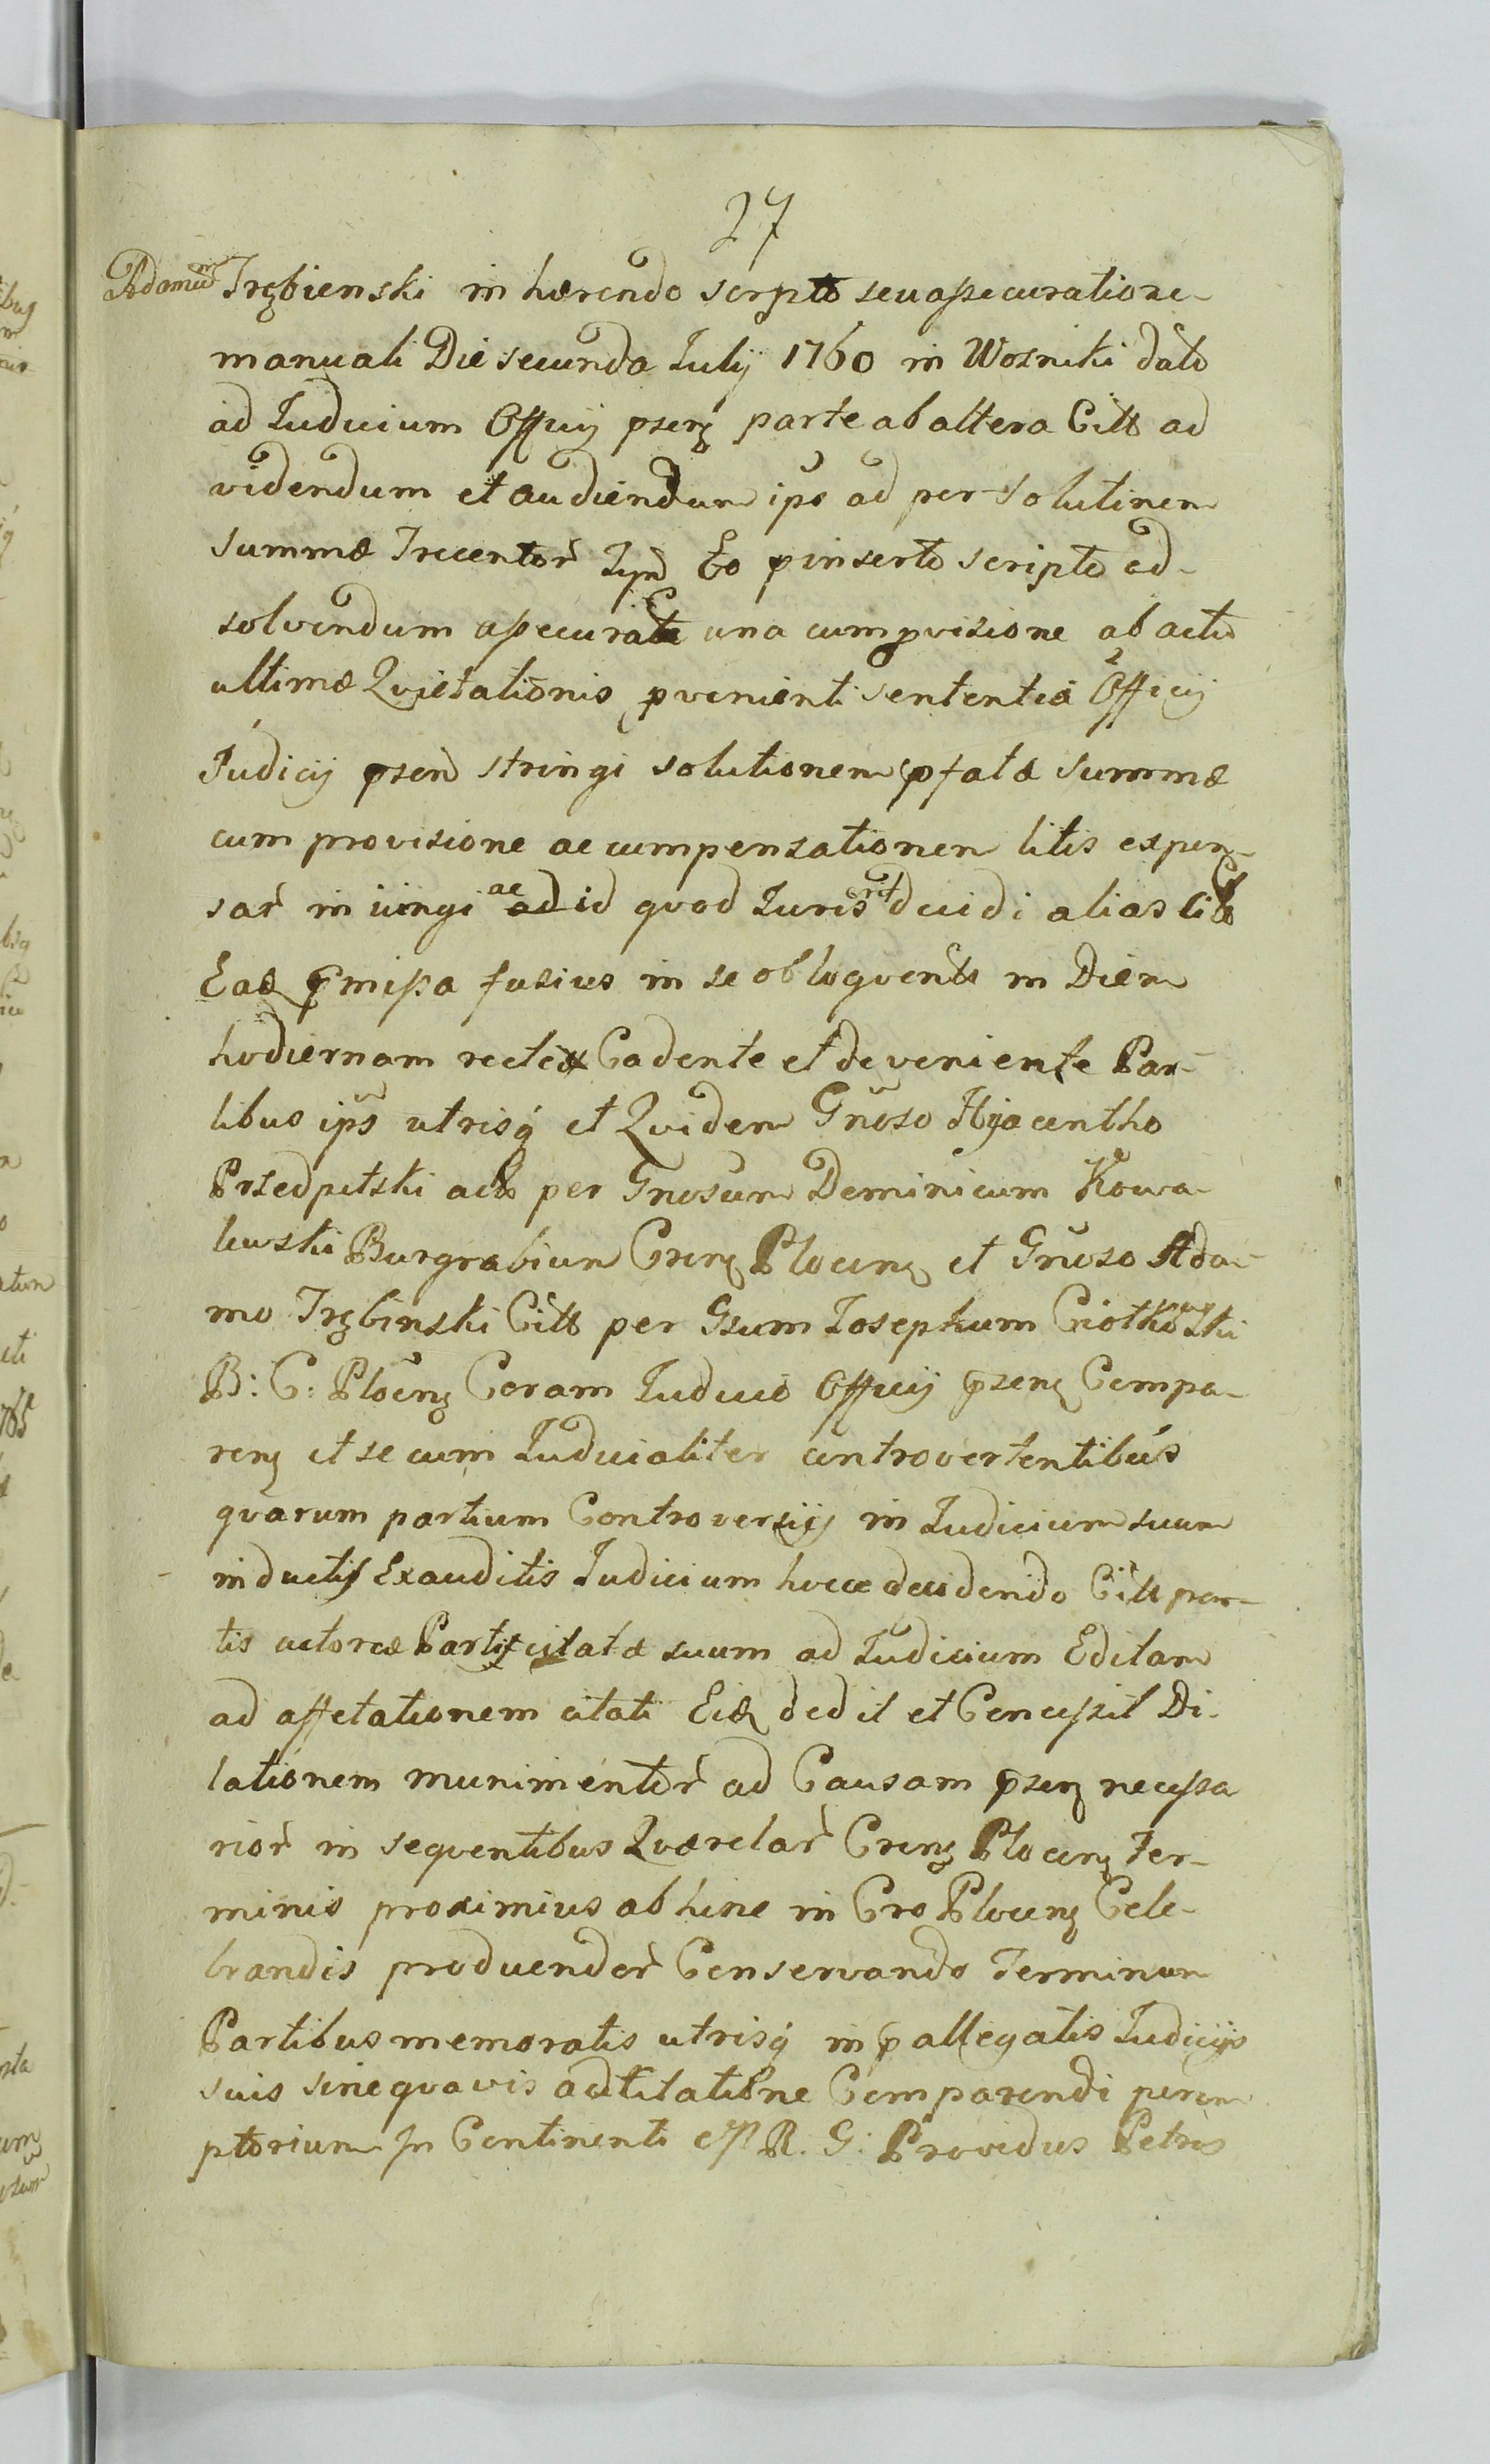 27
Adamum Trębienski in hærendo scripto seu assecuratione
manuali Die secunda Julij 1760 in Wozniki dato
ad Judicium Officij psenς parte ab altera Citt ad
videndum et audiendum ips ad per solutinem
summæ Trecentor̃ Tyn̄ Eo pinserto scripto ad-
solvendum assecurata una cum pvisione ab actu
ultimæ Qvietationis pvenienti sententiâ Officij
Judicij psen stringi solutionem pfatæ summæ
cum provisione ac cumpensationem litis expen-
sar̃ in iungi ac ad id quod Juris erit decidi alias
Eaδ pmissa fusius in se obloqvents in Diem
hodiernam recte Cadente et deveniente Par-
tibus ips utrisq́ et Qvidem Gnoso Hyacentho
Przedpełski act per Gnosum Dominicum Kowa-
lewski Burgrabium Crenς Plocenς et Gnoso Ada-
mo Trębinski Citt per Gsum Josephum Ciołkowski
B: C: Plocenς Coram Judicio Officij psenς Compa-
renς et se cum Judicialiter controvertentibus
qvarum partium Controversijs in Judicium suum
inductis Exauditis Judicium hocce decidendo Citt par-
tis actoreæ Partis citatæ suum ad Judicium Editam
ad affetationem citati Eiδ dedit et Concessit Di-
lationem munimentor̃ ad Causam psenς necessa
rior̃ in seqventibus Qværelar̃ Crenς Plocenς Ter-
minis proximius ab hinc in Cro Plocenς Cele-
brandis producendor̃ Conservando Terminum
Partibus memoratis utrisq́ in pallegatis Judicijs
suis sine qvavis adcitatione Comparendi perem
ptorium In Continenti R. G: Providus Petrus